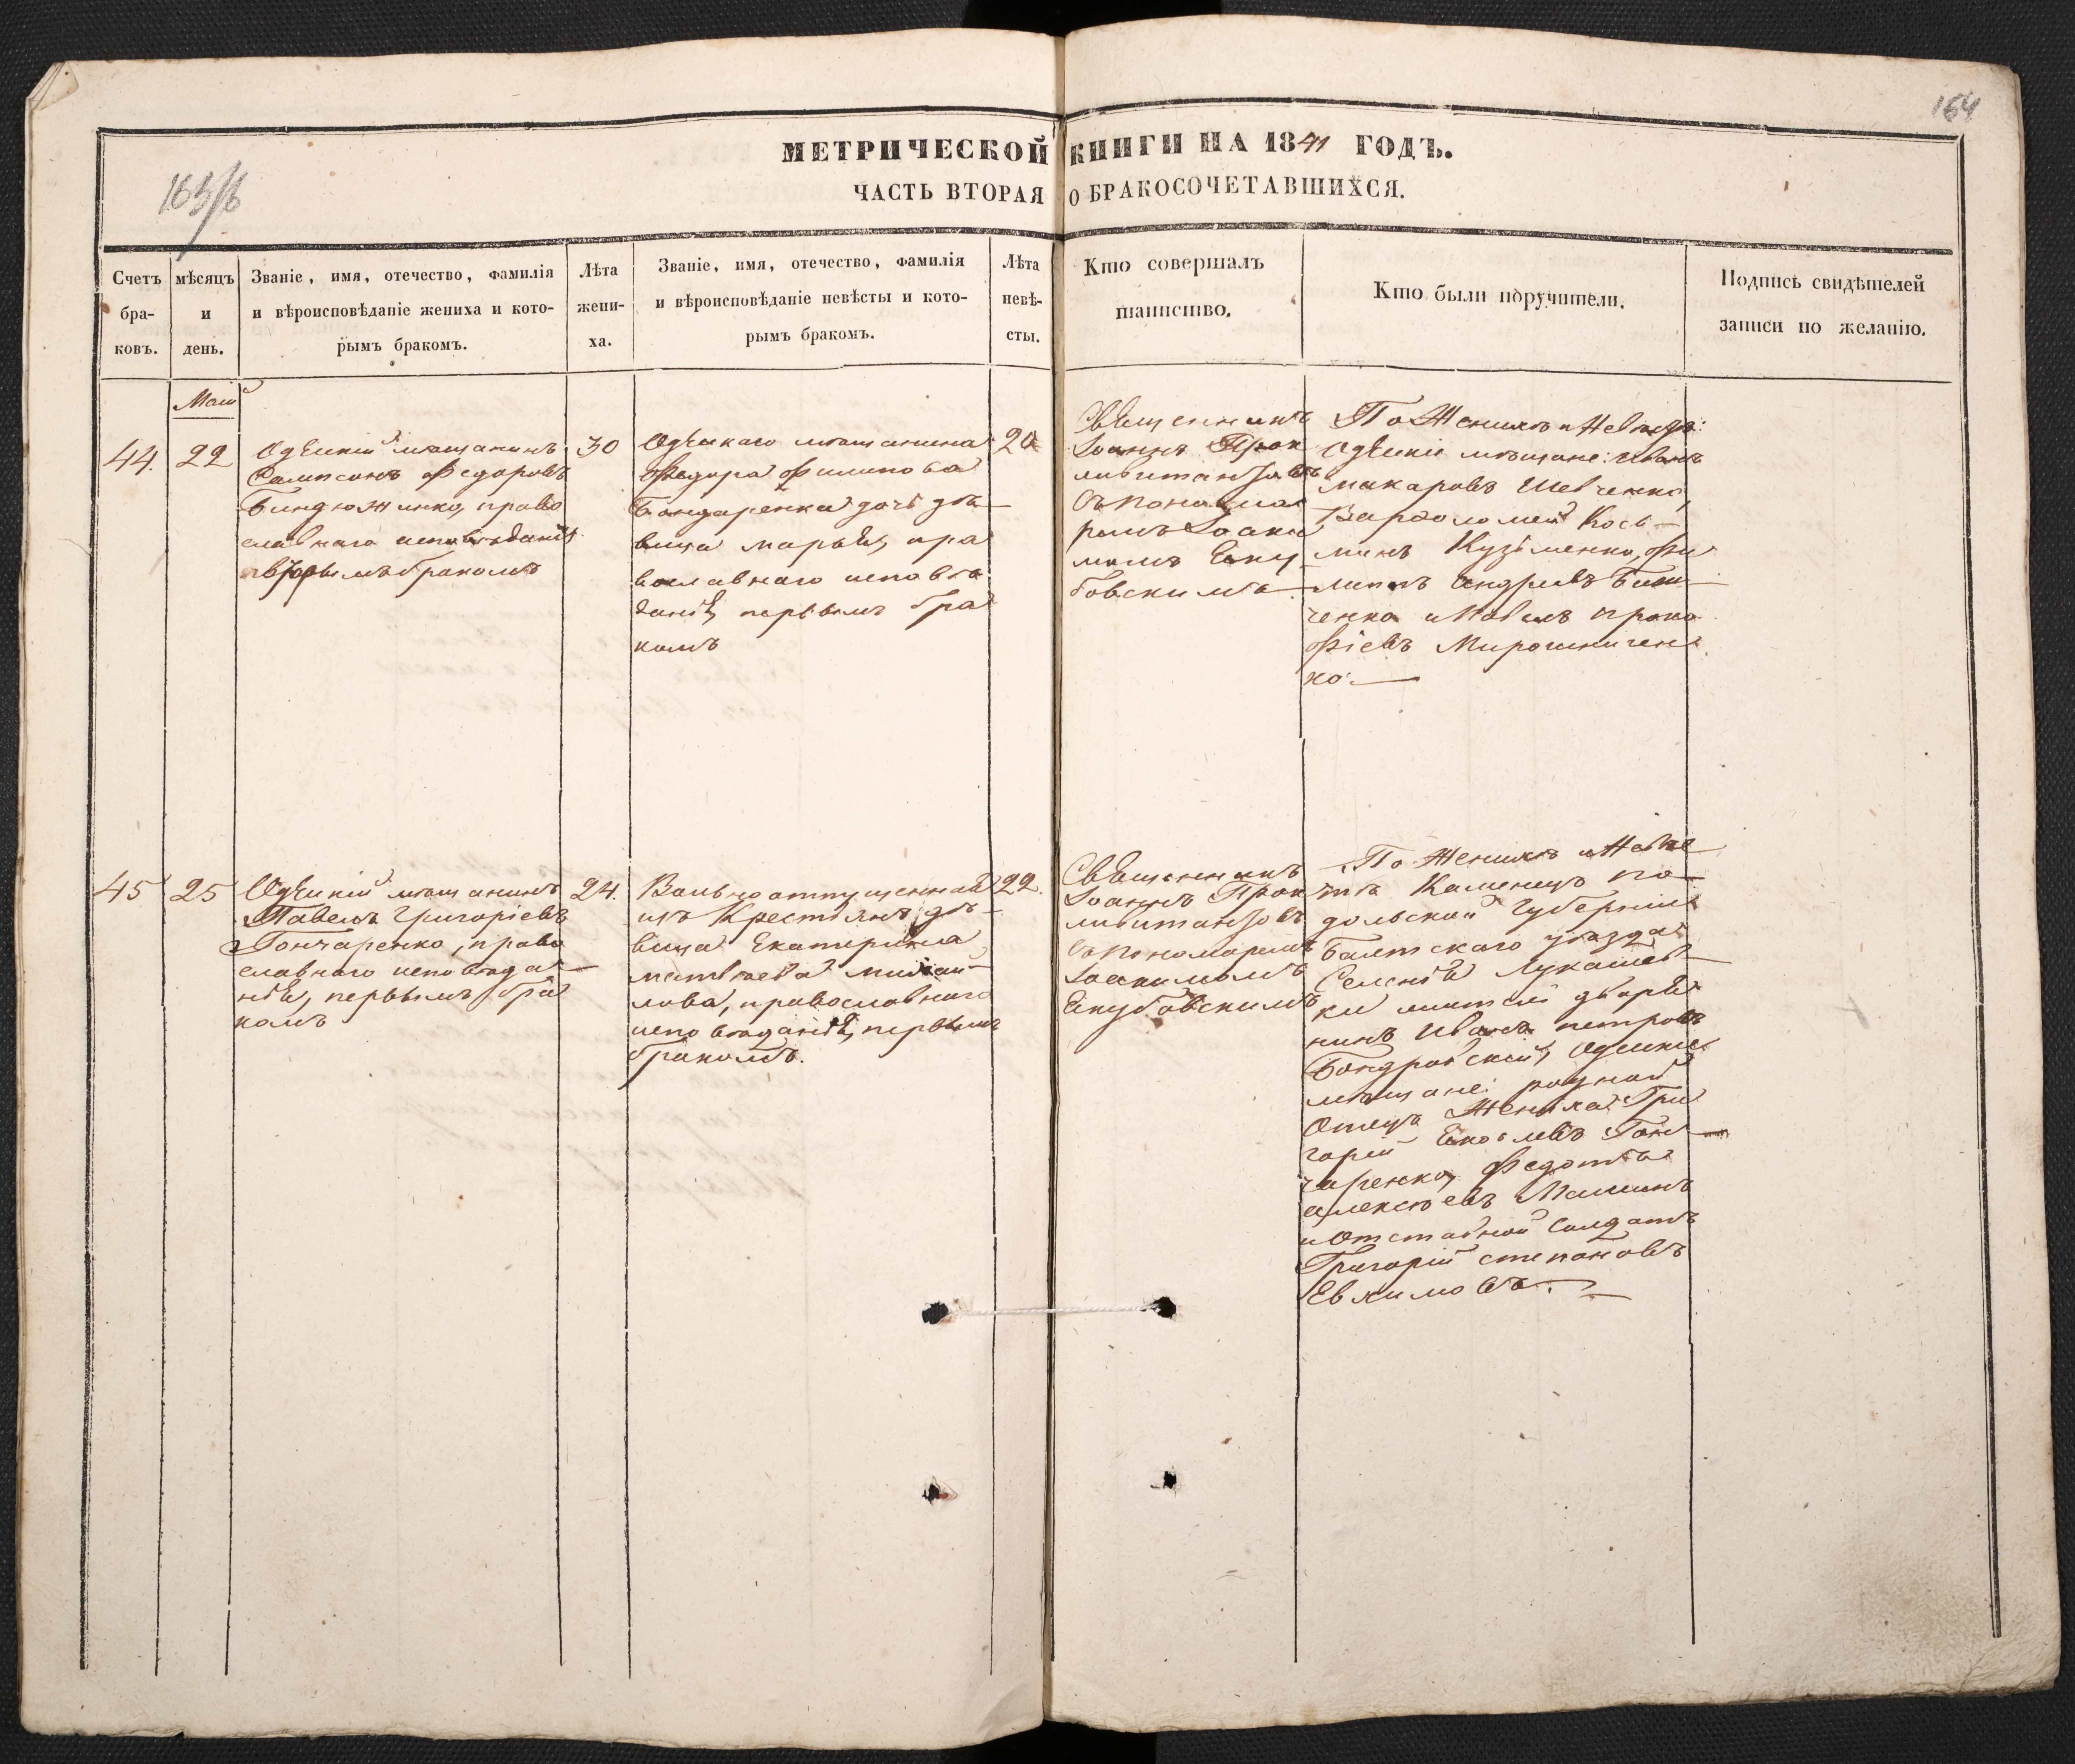 164
163/б
МЕТРИЧЕСКОЙ КНИГИ НА 1841 ГОДЪ.
ЧАСТЬ ВТОРАЯ О БРАКОСОЧЕТАВШИХСЯ.
Счетъ
бра-
ковъ.
мѣсяцъ
и
день.
Званіе, имя, отечество, фамилія
и вѣроисповѣданіе жениха и кото-
рымъ бракомъ.
Лѣта
жени-
ха.
Званіе, имя, отечество, фамилія
и вѣроисповѣданіе невѣсты и кото-
рымъ бракомъ.
Лѣта
невѣ-
сты.
Кто совершалъ
таинство.
Кто были поручители.
Подпись свидѣтелей
записи по желанію.
Маій
44.
22
Одѣскій мѣщанинъ
Сампсонъ Федоровъ
Биндюжинко, право
славнаго исповѣданія
вторымъ бракомъ
30
Одѣскаго мѣщанина
Федора Филипова
Бондаренка дочь дѣ-
вица марья, пра
вославнаго исповѣ
данія, первымъ бра
комъ
20
Священникъ
Іоаннъ
съ понома
ремъ Іоаки
момъ Еку
бовскимъ
По Женихѣ и Невѣстѣ:
Одѣскіе мѣщане: Иванъ
макаровъ Шевченко,
Варфоломей Кось-
минъ Кузьменко, Фи
липъ Андреевъ
ченко и Павелъ проко
фіевъ Мирошничен
ко.
45
25
Одѣскій мѣщанинъ
Павелъ Григоріевъ
Гончаренко, право
славнаго исповѣда-
нія, первымъ бра
комъ
24.
Вольноотпущенная
изъ Крестьянъ дѣ-
вица Екатерина
матвѣева михай-
лова, православнаго
исповѣданія, первымъ
бракомъ.
22.
Священникъ
Іоаннъ
съ пономаремъ
Іоакимомъ
Екубовскимъ
По Женихѣ и Невѣ
стѣ Каменецъ по-
дольской Губерніи
Балтскаго уѣзда
Селенія Лукашев-
ки житель дворя
нинъ Иванъ петровъ
Бондровскій, Одѣскіе
мѣщане: родной
Отецъ Жениха Гри
горійЕковлевъ Гон-
чаренко, Федотъ
алексѣевъ Машинъ
и Отставной Солдатъ
Григорій степановъ
Евкимовъ.